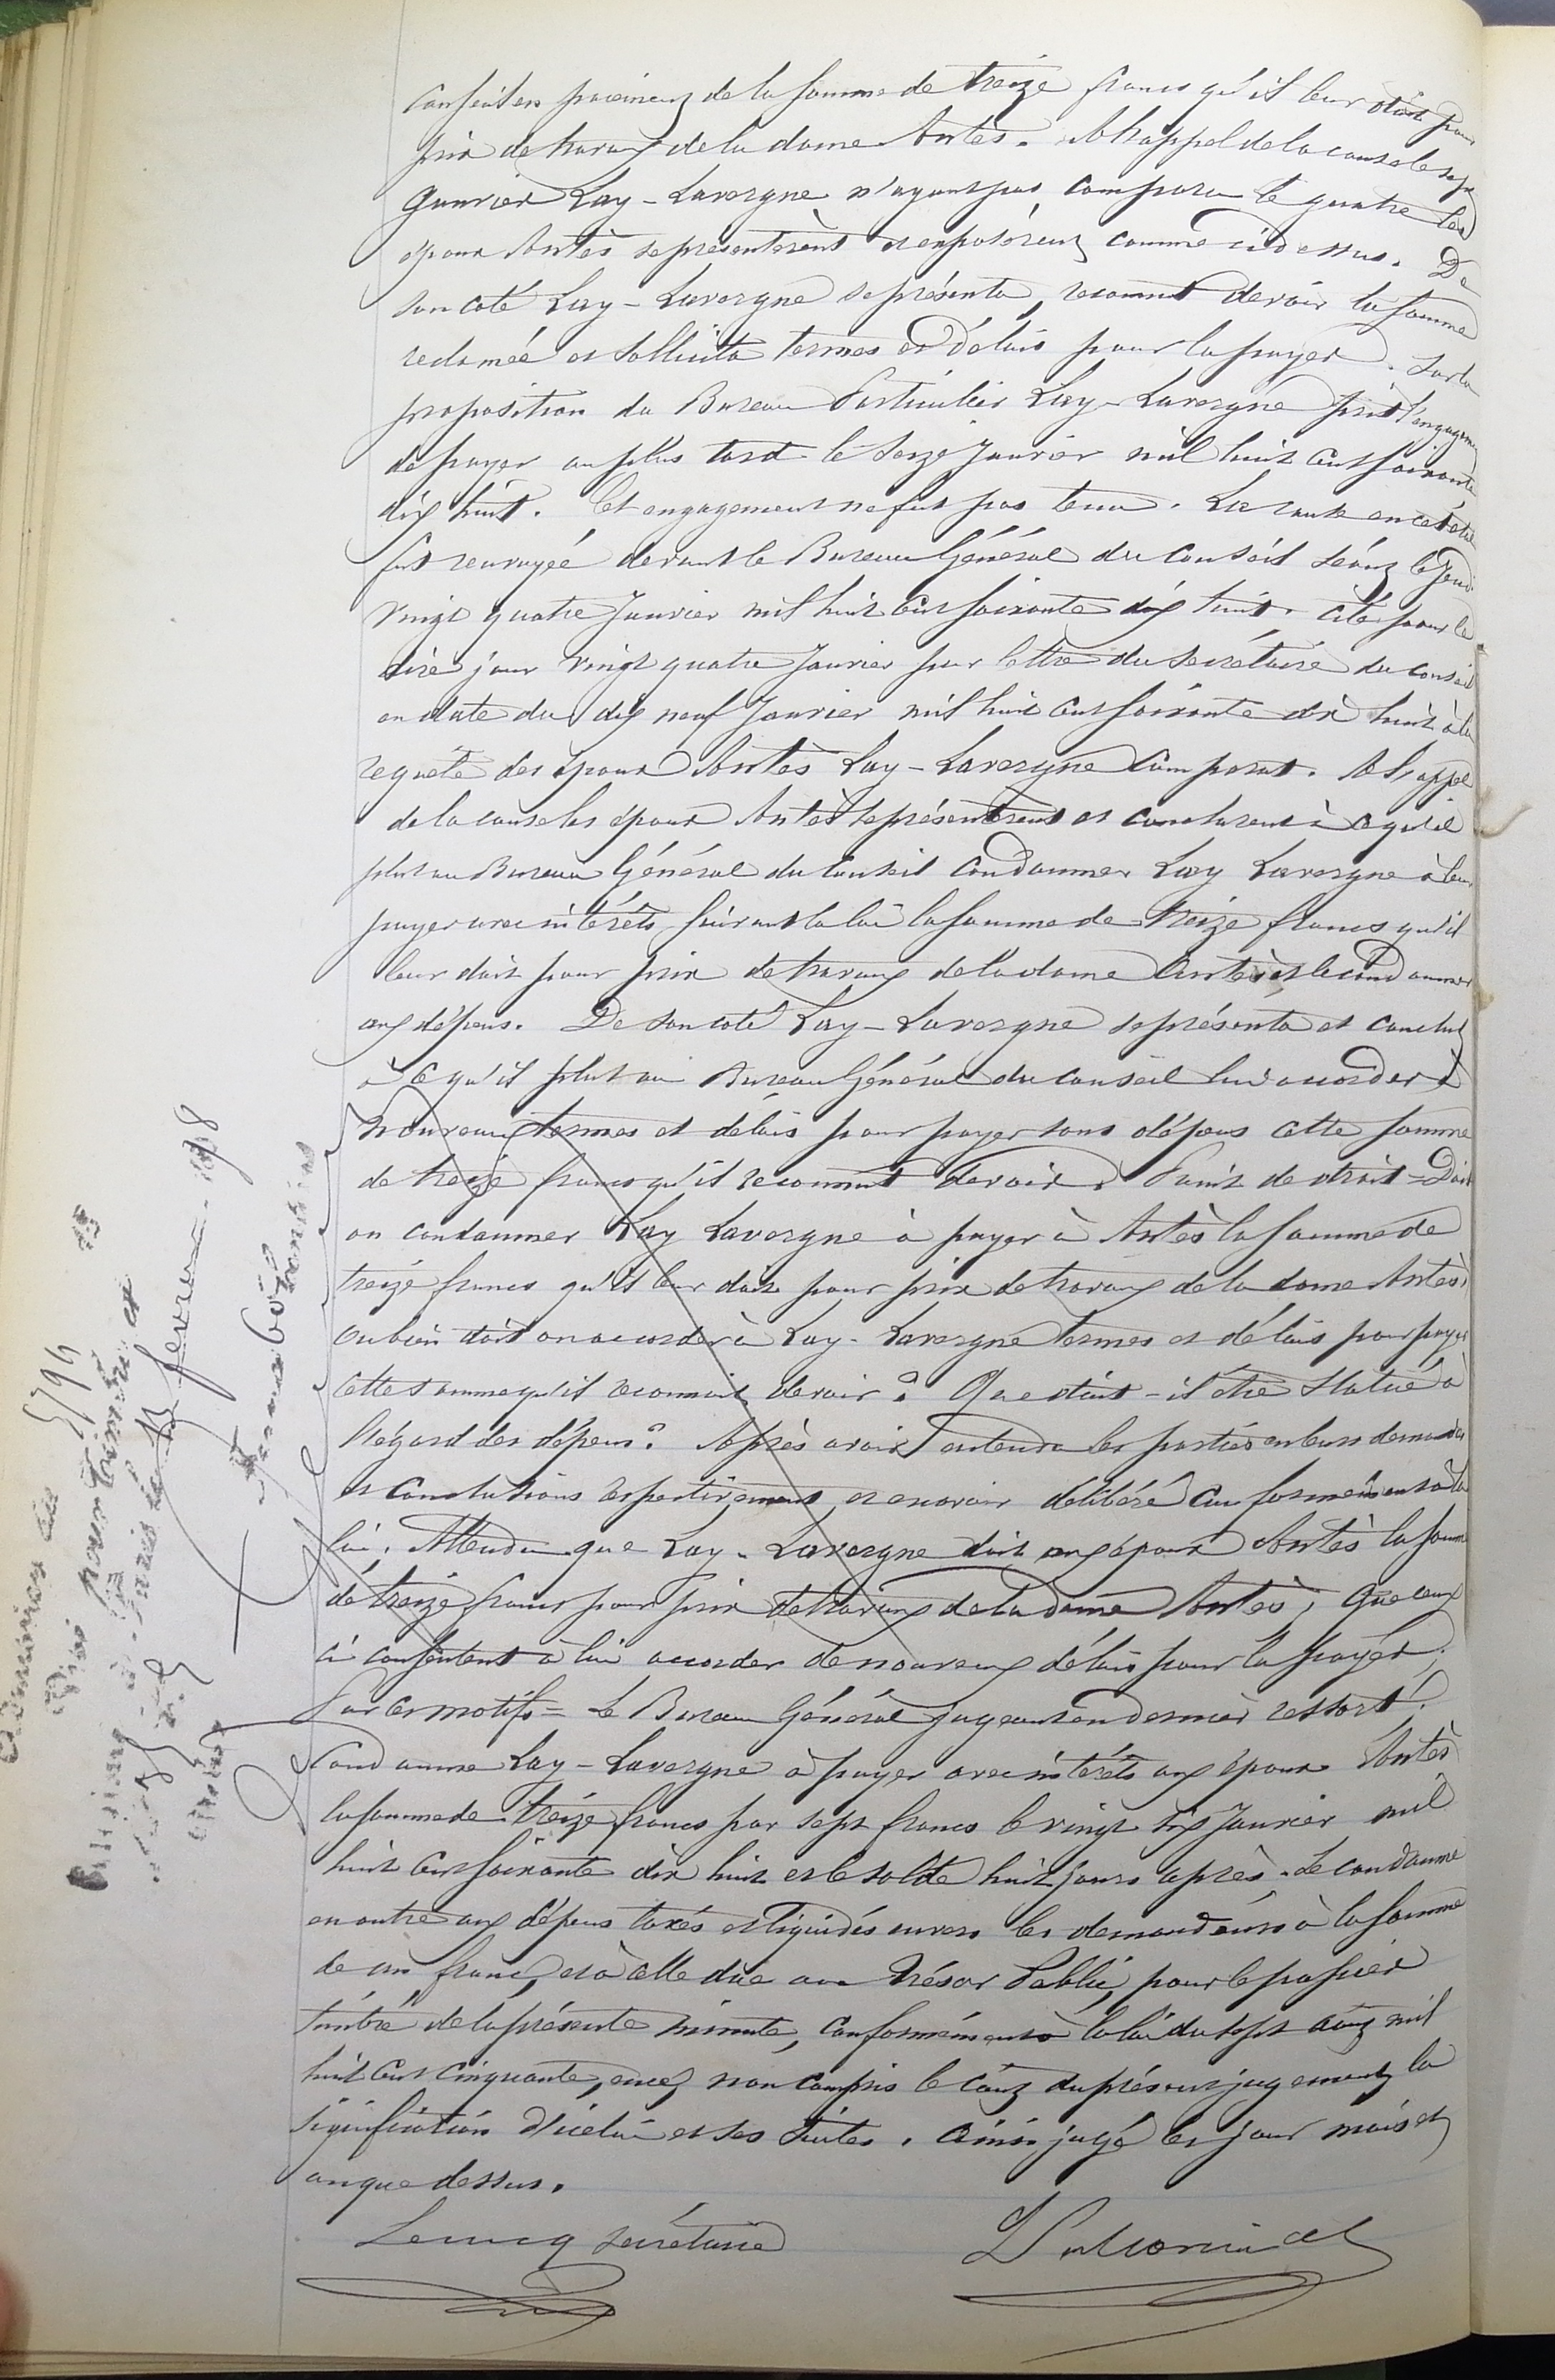 Conseil en paiement de la somme de treize francs qu'il leur doit pour
prix de travaux de la dame Antès. A l'appel de la cause le sept
Janvier Lay-Lavergne n'ayant pas comparu le quatre les
époux Antès se présentèrent et exposèrent comme ci dessus. De
son coté Lay-Lavergne se présenta, reconnut devoir la somme
reclamée et sollicita termes et délais pour la payer. Sur la
proposition du Bureau Particulier Lay-Lavergne prit l'engagement
de payer au plus tard le seize Janvier mil huit cent soixante
dix huit. Cet engagement ne fut pas tenu. La cause en cet état
fut renvoyée devant le Bureau Général du Conseil séant le Jeudi
vingt quatre Janvier mil huit cent soixante dix huit. Cité pour le
dit jour vingt quatre Janvier par lettre du secrétaire du conseil
en date du dix neuf Janvier mil huit cent soixante dix huit à la
requête des époux Antès Lay-Lavergne comparut. A l'appel
de la cause les époux Antès se présentèrent et conclurent à ce qu'il
plut au Bureau Général du Conseil condamner Lay Lavergne à leur
payer avec intérêts suivant la loi la somme de treize francs qu'il
leur doit pour prix de travaux de la dame Antès et le condamner
aux dépens. De son coté Lay-Lavergne se présenta et conclut
à ce qu'il plut au Bureau Général du Conseil lui accorder de
nouveaux termes et délais pour payer sans dépens cette somme
de treize francs qu'il reconnut devoir. Point de droit = Doit
on condamner Lay Lavergne à payer à Antès la somme de
treize francs qu'il leur doit pour prix de travaux de la dame Antès,
ou bien doit on accorder à Lay-Lavergne termes et délais pour payer
cette somme qu'il reconnait devoir? Que doit-il être statué à
l'égard des dépens? Après avoir entendu les parties en leurs demandes
et conclusions respectivement et en avoir délibéré conformément à la
loi. Attendu que Lay-Lavergne doit aux époux Antès la somme
de treize francs pour prix de travaux de la dame Antès; Que ceux
ci consentent à lui accorder de nouveaux délais pour la payer;
Par ces motifs = Le Bureau Général jugeant en dernier ressort;
Condamne Lay-Lavergne à payer avec intérêts aux époux Antès
la somme de treize francs par sept francs le vingt six Janvier mil
huit cent soixante dix huit et le solde huit jours après. Le condamne
en outre aux dépens taxés et liquidés envers les demandeurs à la somme
de un franc, et à celle due au Trésor Public, pour le papier
timbré de la présente minute, conformément à la loi du sept août mil
huit cent cinquante, ence, non compris le coût du présent jugement, la
signification d'icelui et ses suites. Ainsi jugé les jour mois et
an que dessus.
Lecucq secrétaire